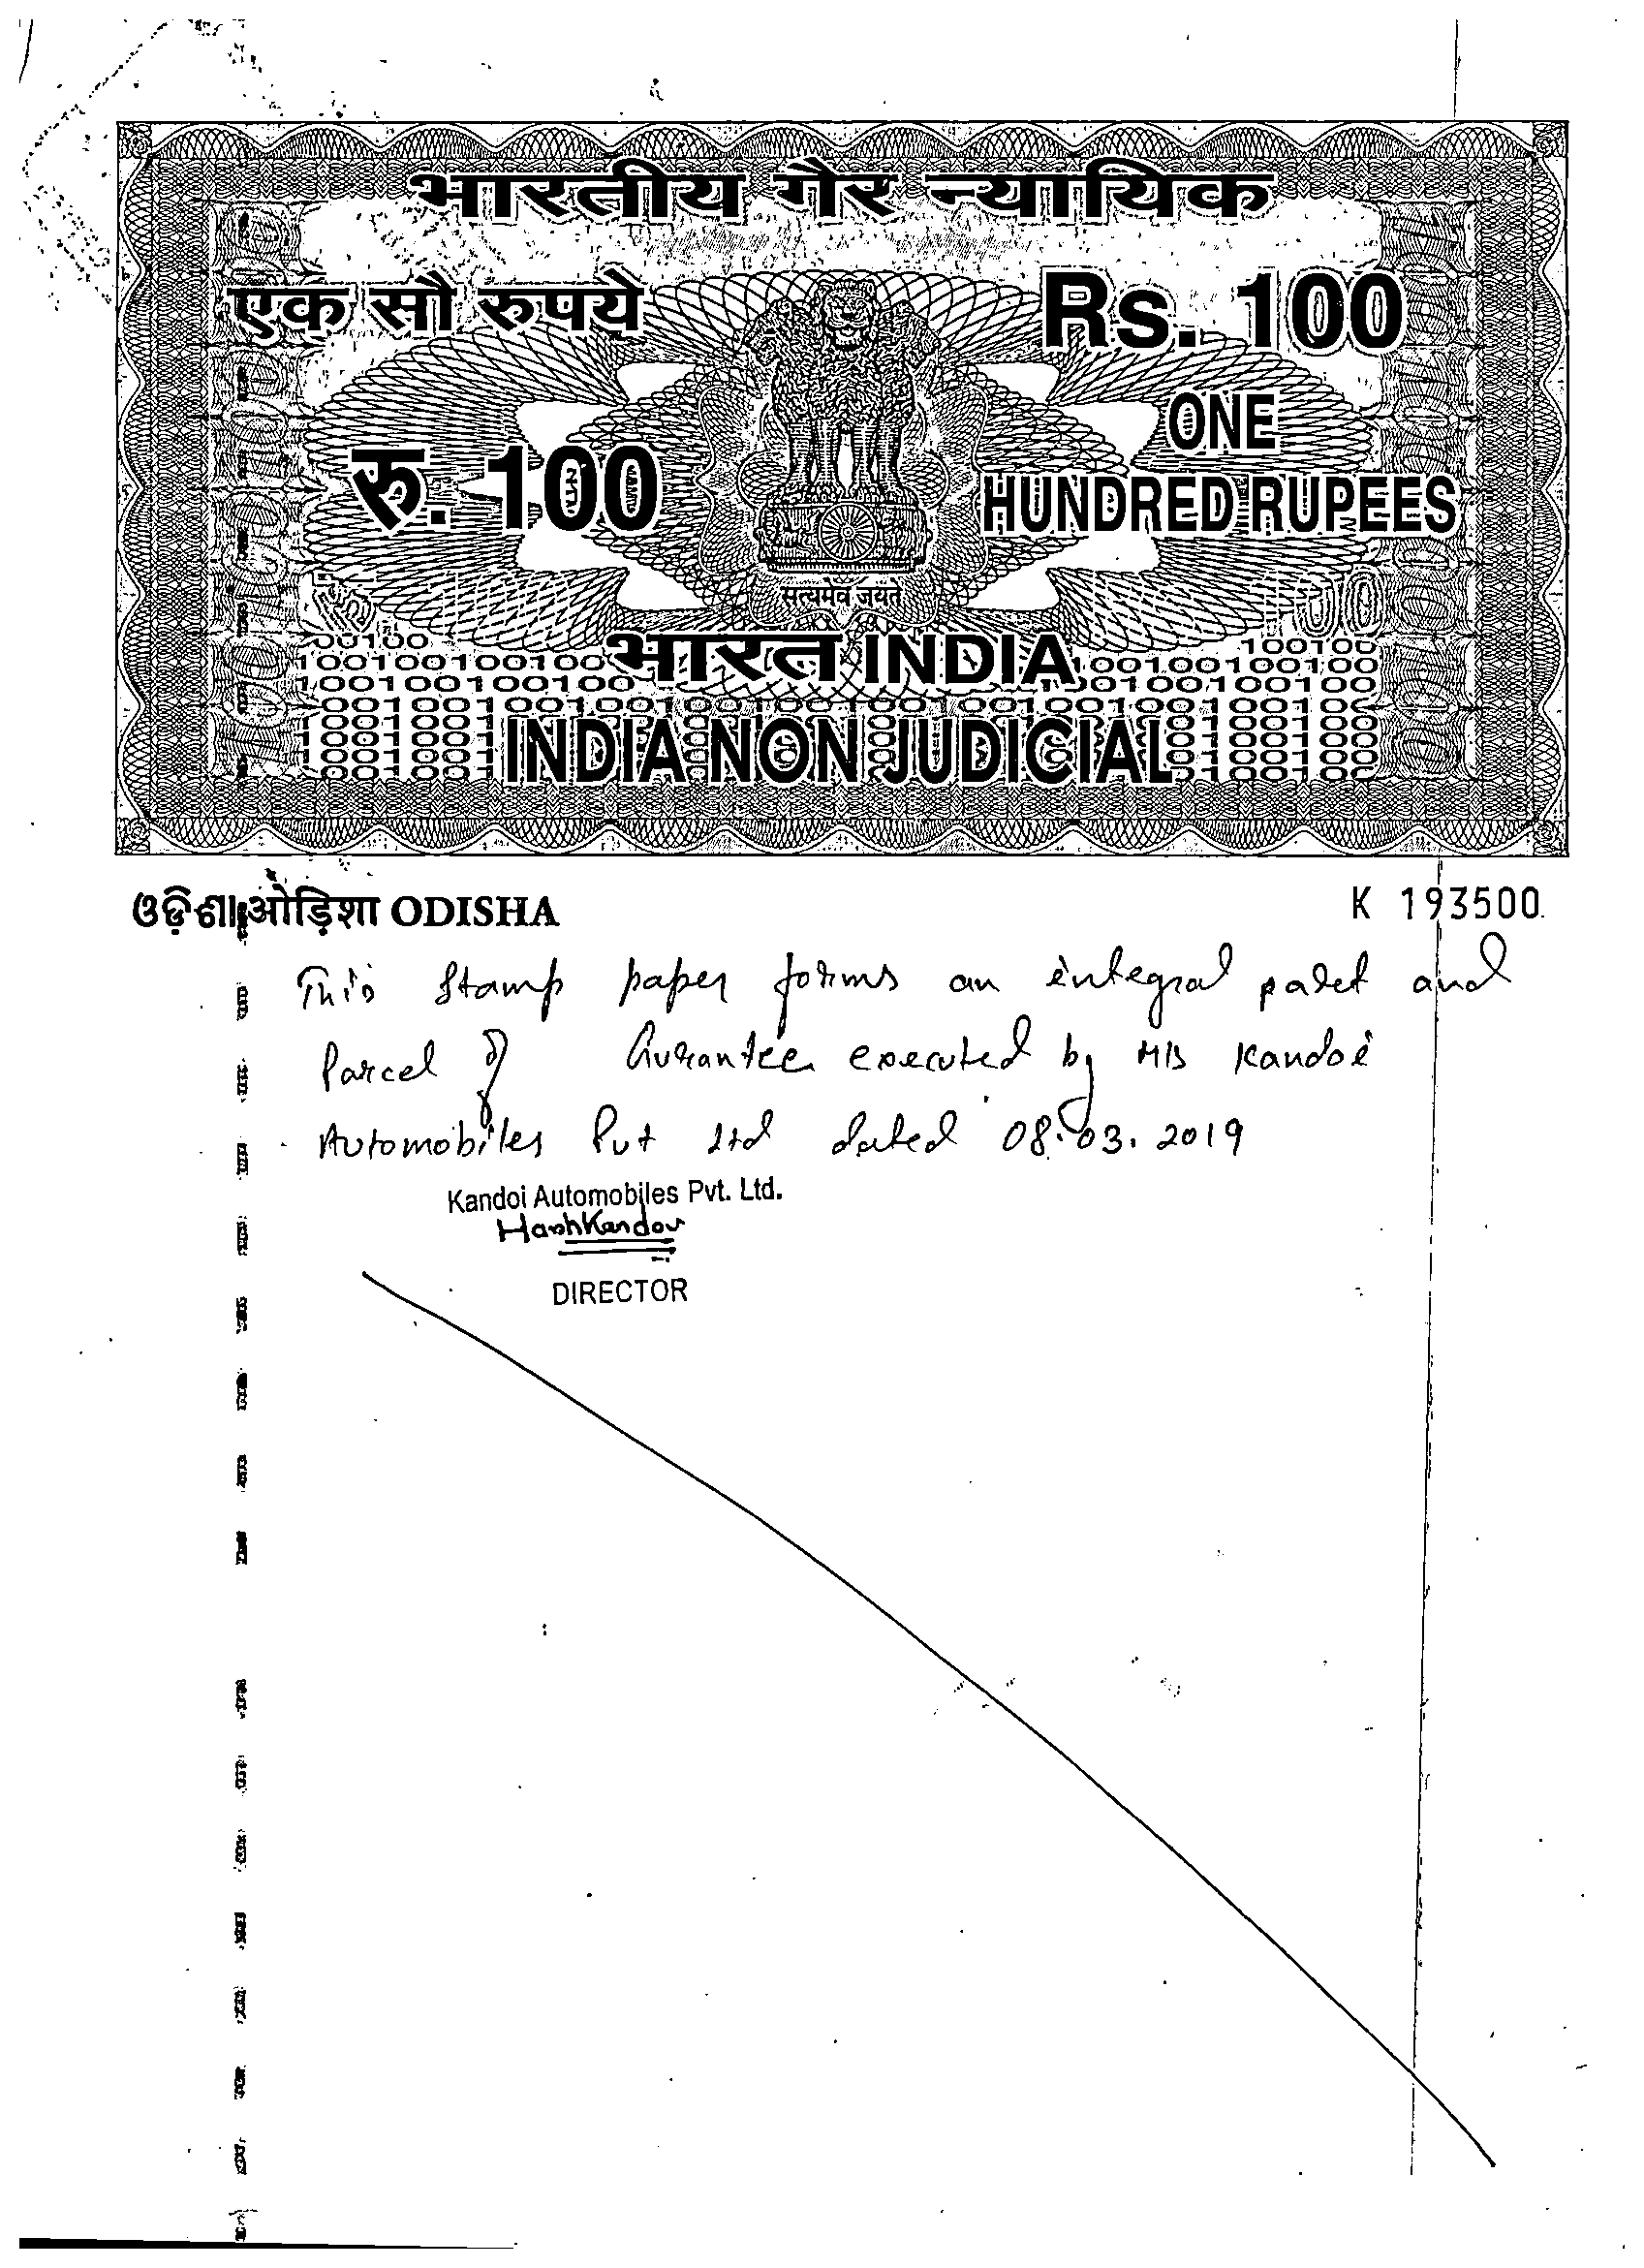 भारतीय गैर न्यायिक
एक सौ रुपये
Rs. 100
रु. 100
ONE
HUNDRED RUPEES
सत्यमेव जयते
भारत INDIA
INDIA NON JUDICIAL
ଓଡ଼ିଶା ओड़िशा ODISHA
K 193500
This Stamp paper forms an integral part and
Parcel of Gurantee executed by M/s Kandoi
Automobiles Pvt Ltd dated 08.03.2019
Kandoi Automobiles Pvt. Ltd.
DIRECTOR